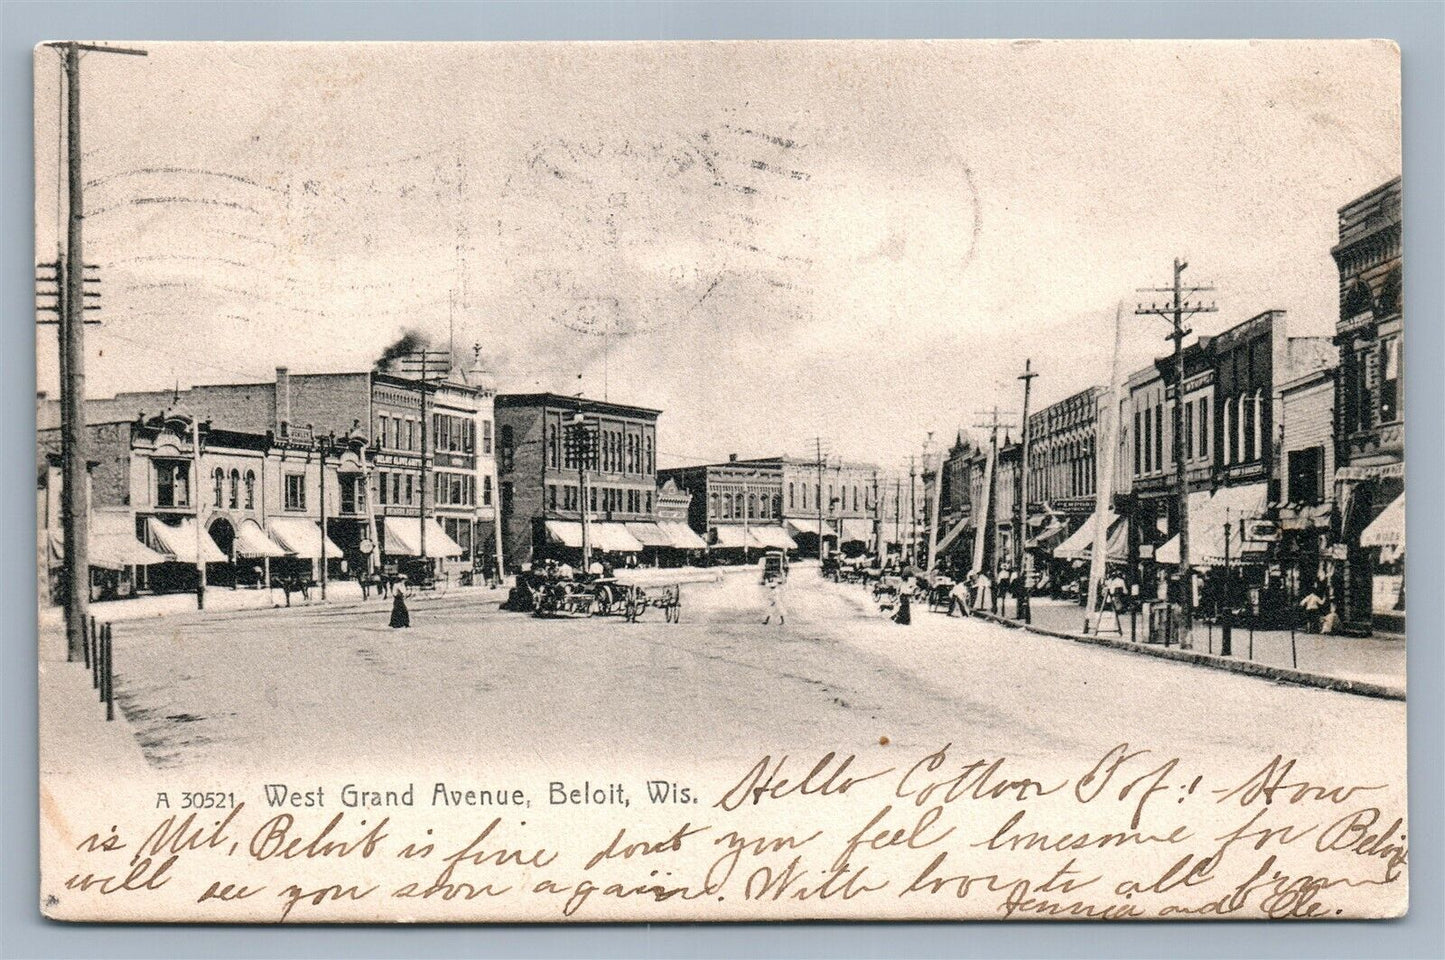 A 30521 West Grand Avenue, Beloit, Wis. Hello Cotton Top! - How
is Mil, Beloit is fine dont you feel lonesome for Beloit
will see you soon again. With love to all from
Jennie and Ele.